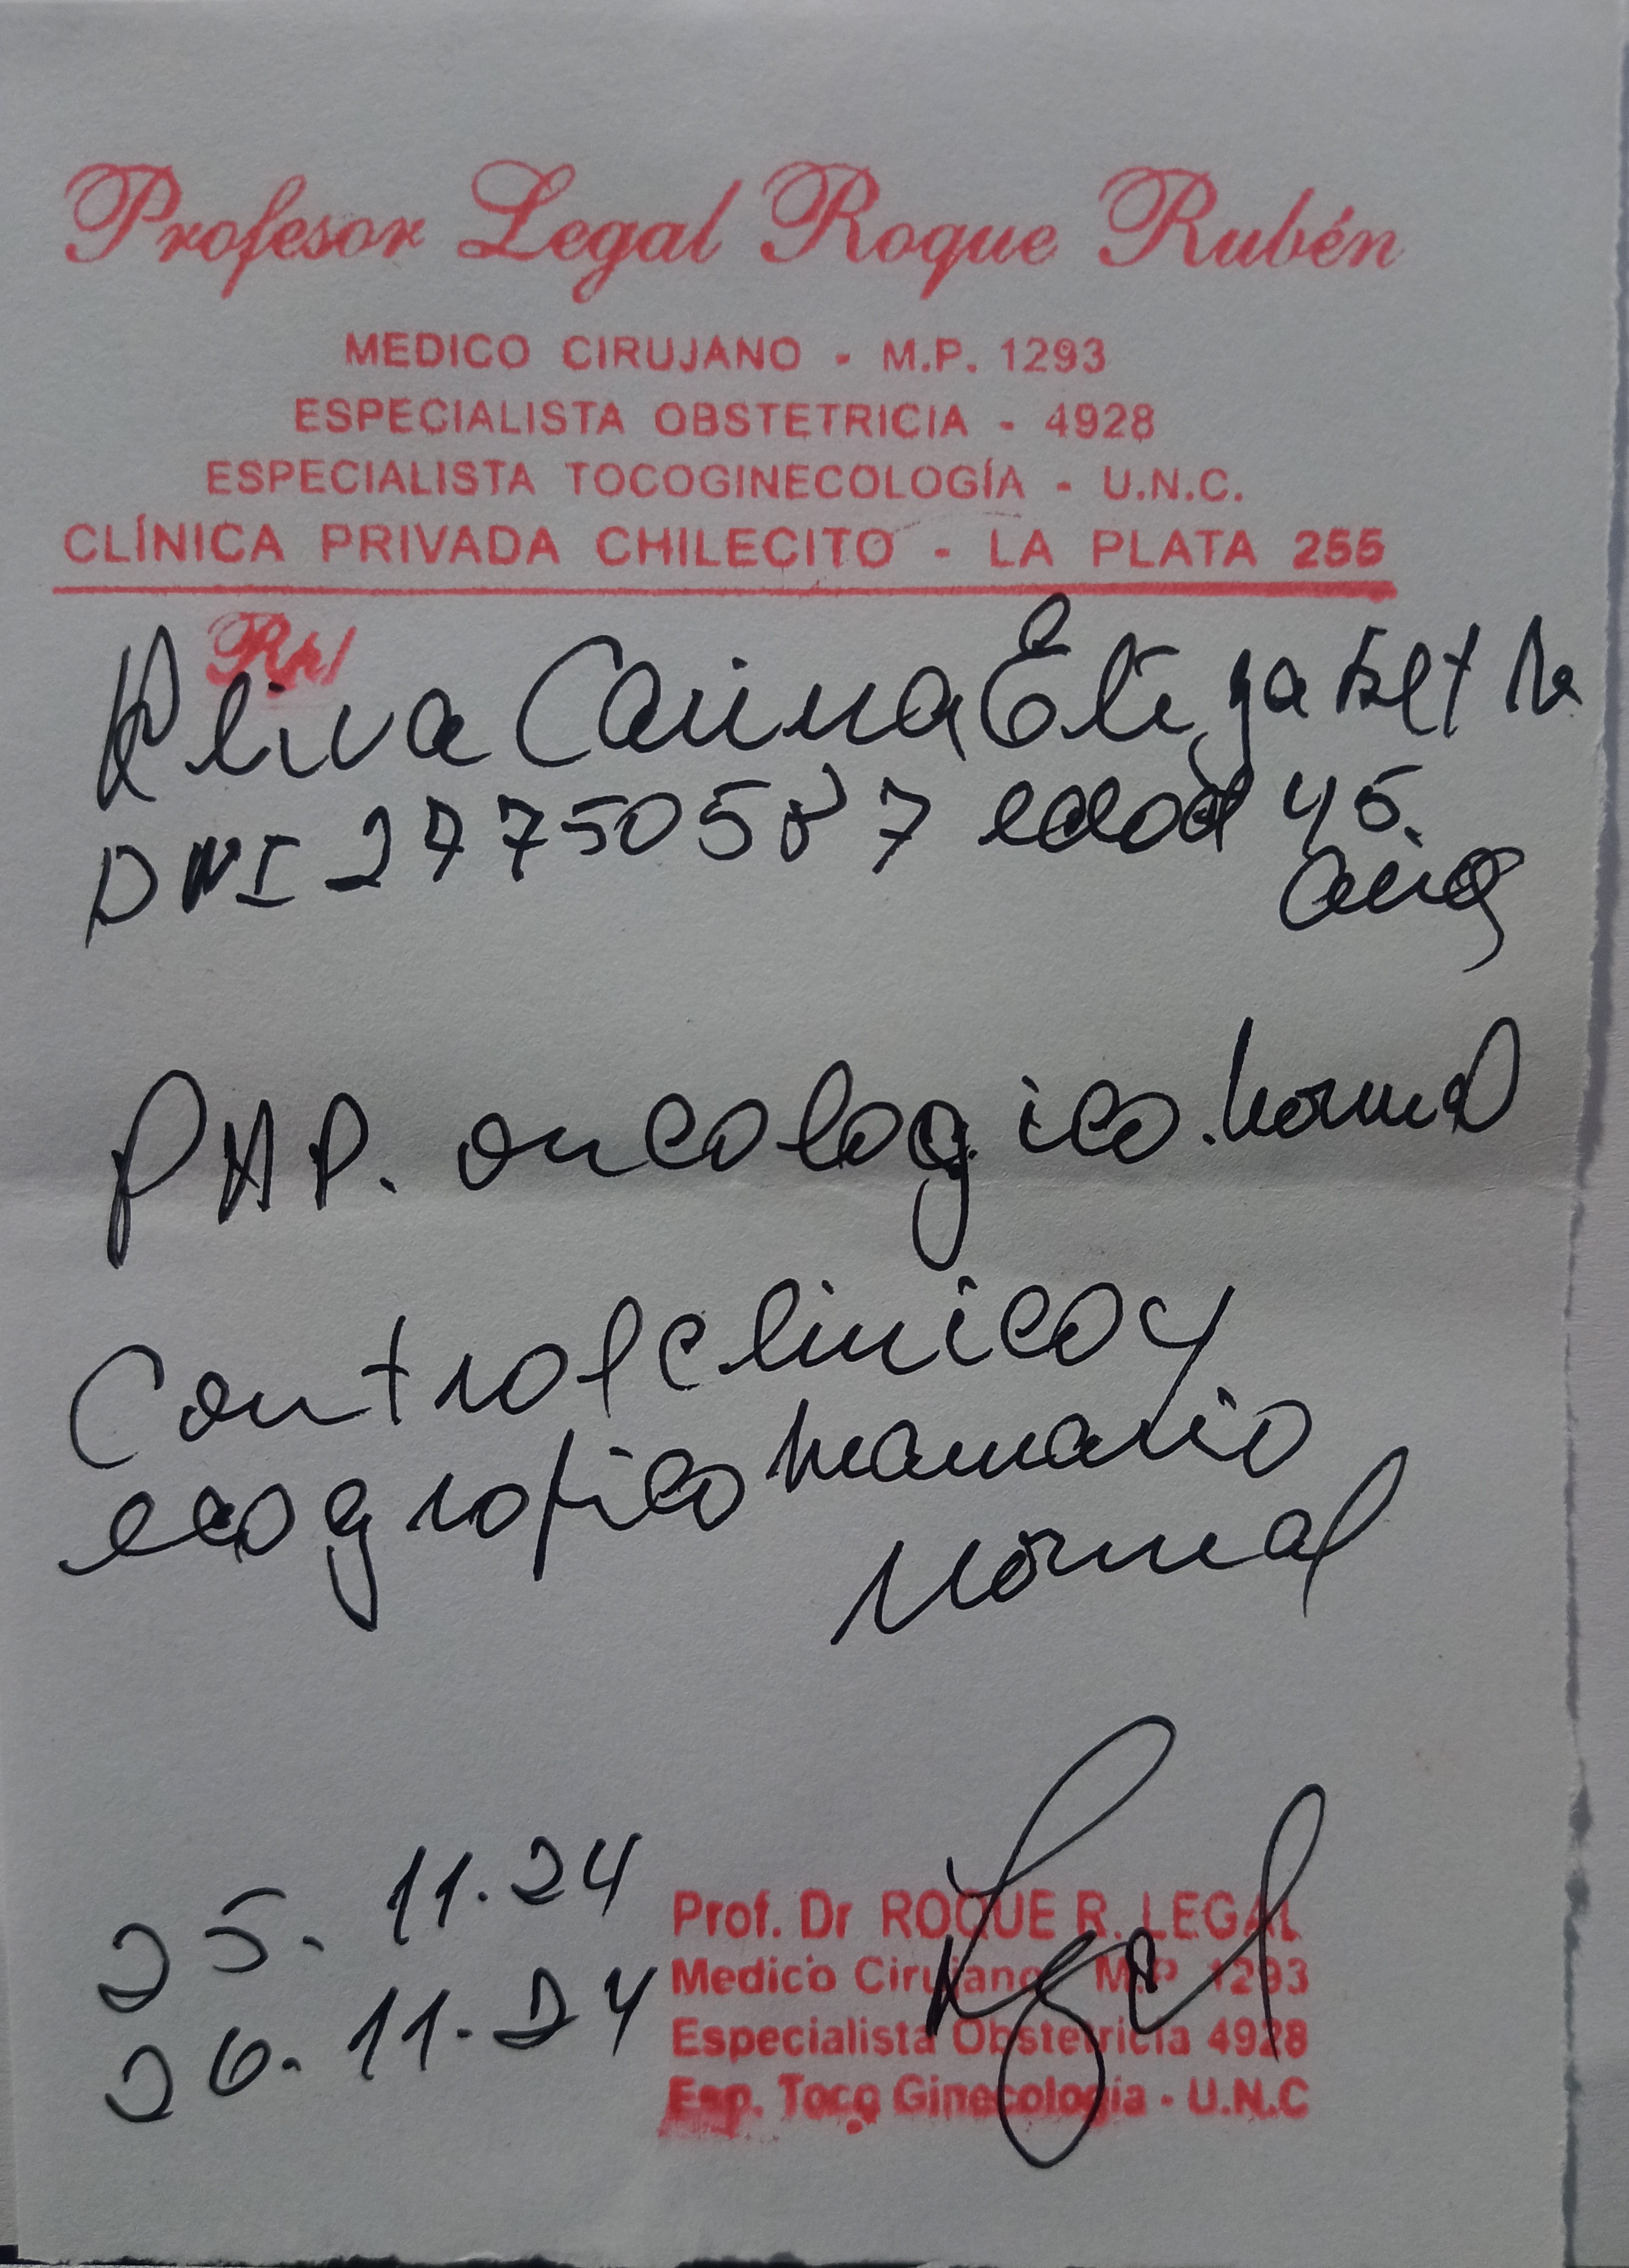 Profesor Legal Roque Rubén
MEDICO CIRUJANO - M.P. 1293
ESPECIALISTA OBSTETRICIA - 4928
ESPECIALISTA TOCOGINECOLOGÍA - U.N.C.
CLÍNICA PRIVADA CHILECITO - LA PLATA 255
Rp/
Carina Elizabeth
DNI 27750587 edad 45
años
PAP. oncologico. normal
Control clinico y
ecografico mamario
normal
25. 11. 24
26. 11. 24
Prof. Dr ROQUE R. LEGAL
Medico Cirujano M.P. 1293
Especialista Obstetricia 4928
Esp. Toco Ginecologia - U.N.C